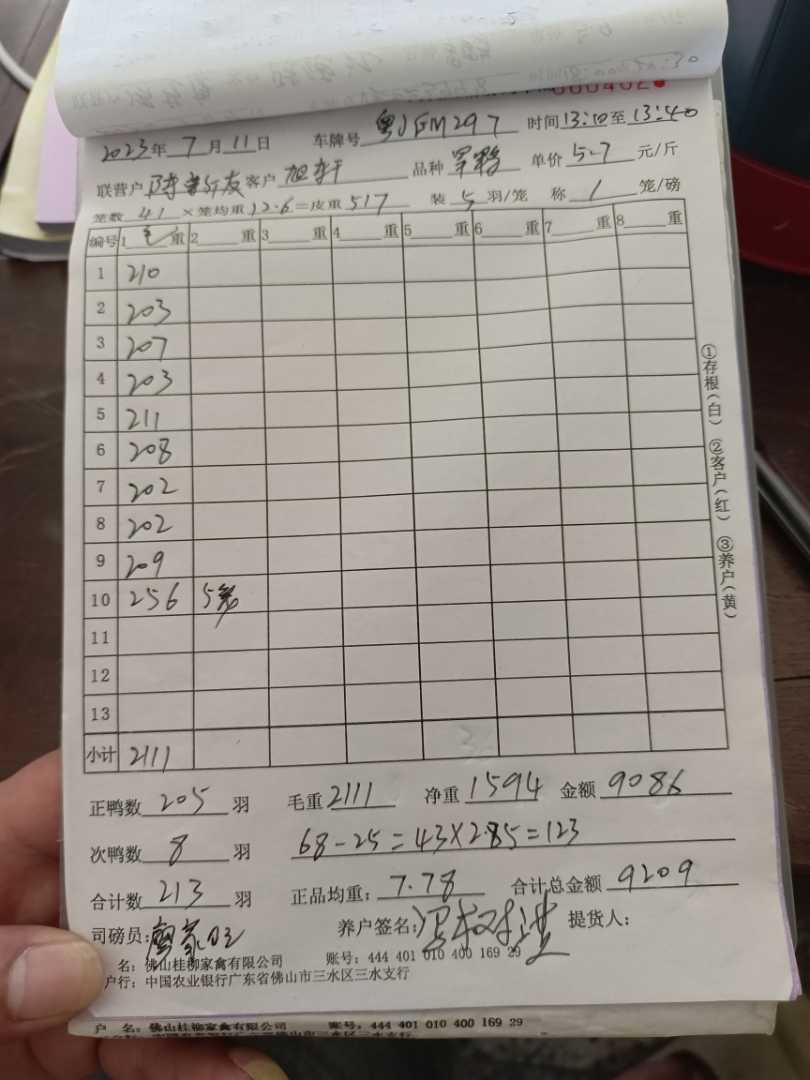 000402
2023年7月11日 车牌号粤JFM297 时间13:10至13:40
联营户 客户旭轩 品种 单价5.7元/斤
笼数41×笼均重12.6=皮重517 装5羽/笼 称1笼/磅
编号 1毛重 2重 3重 4重 5重 6重 7重 8重
1 210
2 203
3 207
4 203
5 211
6 208
7 202
8 202
9 209
10 256 5笼
11
12
13
小计 2111
①存根(白) ②客户(红) ③养户(黄)
正鸭数205羽 毛重2111 净重1594 金额9086
次鸭数8羽 68-25=43×2.85=123
合计数213羽 正品均重:7.78 合计总金额9209
司磅员: 养户签名: 提货人:
名:佛山桂柳家禽有限公司 账号:444 401 010 400 169 29
户行:中国农业银行广东省佛山市三水区三水支行
户 名:佛山桂柳家禽有限公司 账号:444 401 010 400 169 29